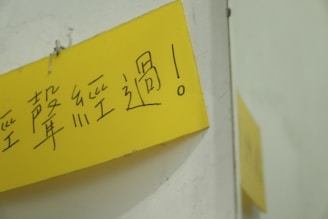 聲經過!